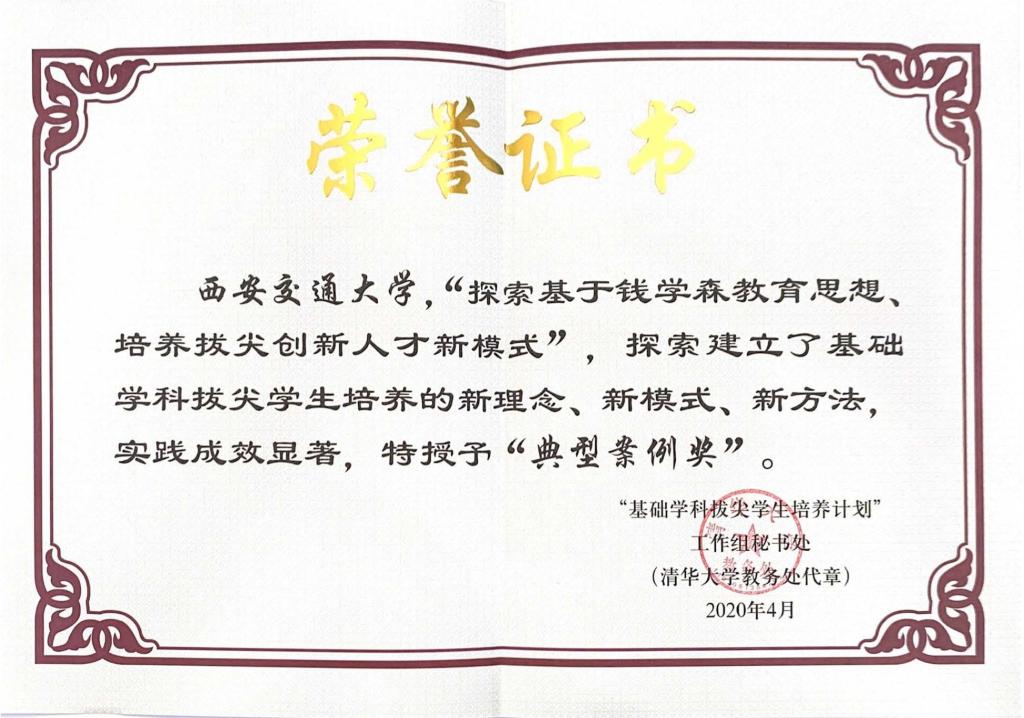 荣誉证书
西安交通大学，“探索基于钱学森教育思想、
培养拔尖创新人才新模式”，探索建立了基础
学科拔尖学生培养的新理念、新模式、新方法，
实践成效显著，特授予“典型案例奖”。
“基础学科拔尖学生培养计划”
工作组秘书处
（清华大学教务处代章）
2020年4月
清华大学
教务处